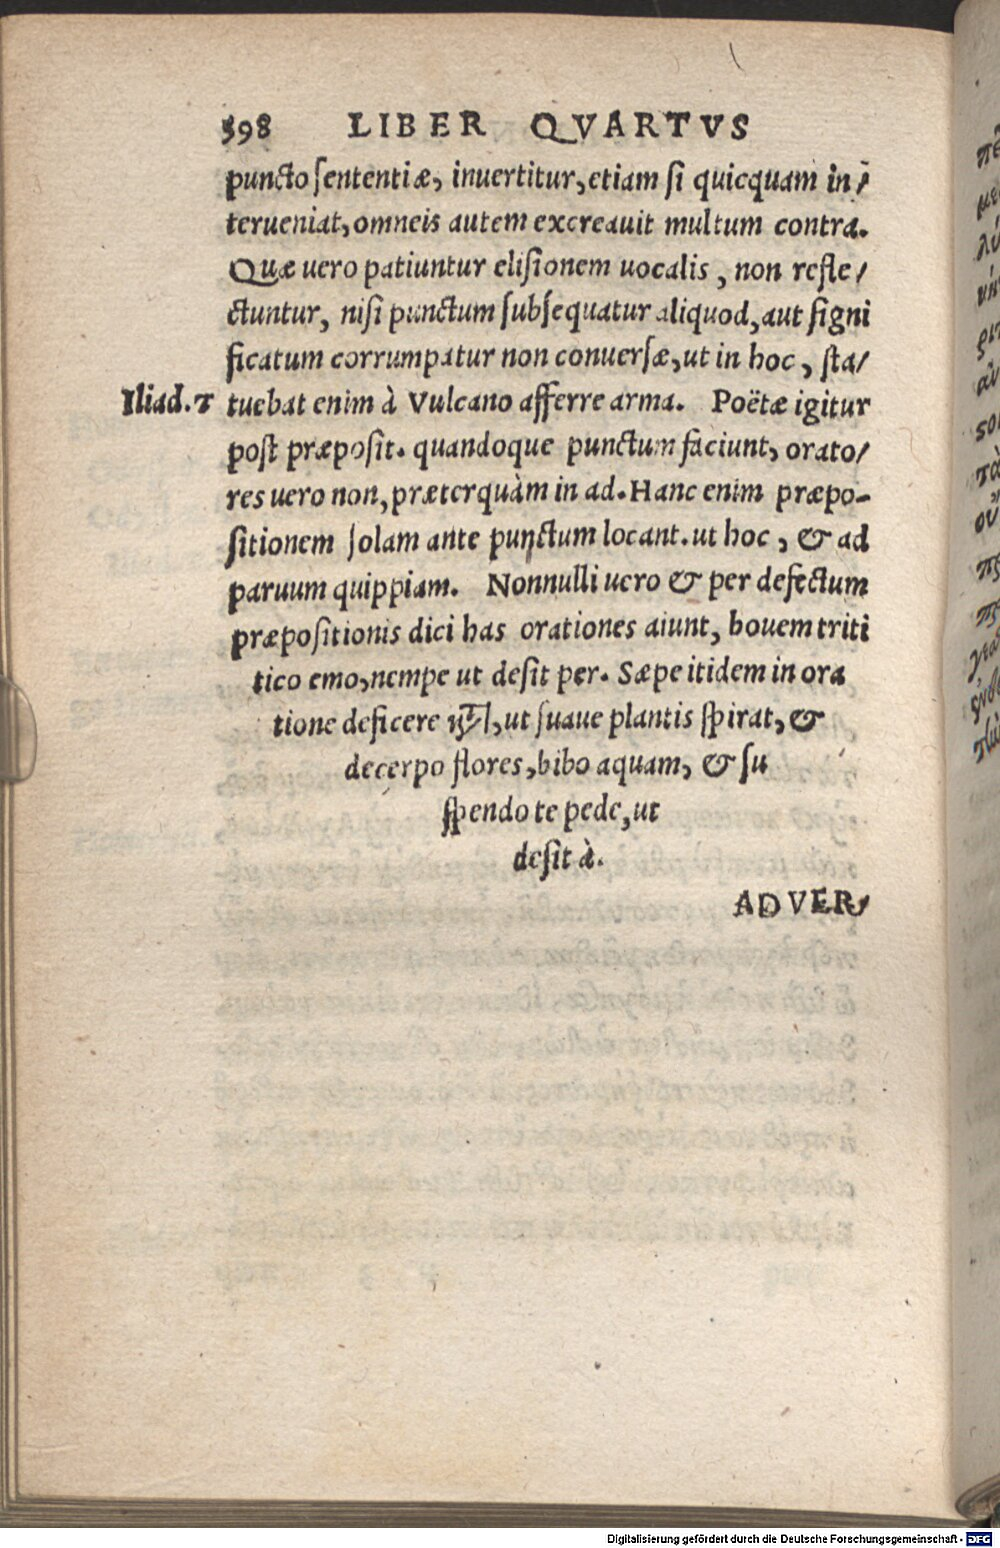 398 LIBER QVARTVS
puncto sententiæ, inuertitur, etiam si quicquam in/
terueniat, omneis autem excreauit multum contra.
Quæ uero patiuntur elisionem uocalis, non refle/
ctuntur, nisi punctum subsequatur aliquod, aut signi
ficatum corrumpatur non conuersæ, ut in hoc, sta/
Iliad. τ tuebat enim à Vulcano afferre arma. Poëtæ igitur
post præposit. quandoque punctum faciunt, orato/
res uero non, præterquàm in ad. Hanc enim præpo-
sitionem solam ante punctum locant. ut hoc, & ad
paruum quippiam. Nonnulli uero & per defectum
præpositionis dici has orationes aiunt, bouem triti
tico emo, nempe ut desit per. Sæpe itidem in ora
tione deficere, ut suaue plantis spirat, &
decerpo flores, bibo aquam, & su
spendo te pede, ut
desit à.
ADVER/
Digitalisierung gefördert durch die Deutsche Forschungsgemeinschaft - DFG